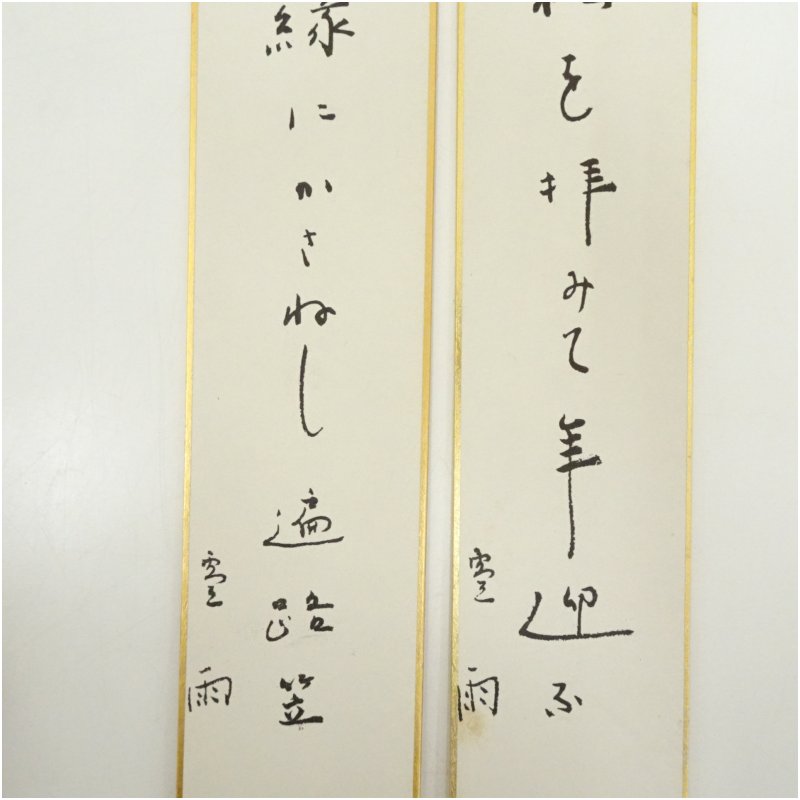 を拝みて年迎ふ
霊雨
縁にかさねし遍路笠
霊雨